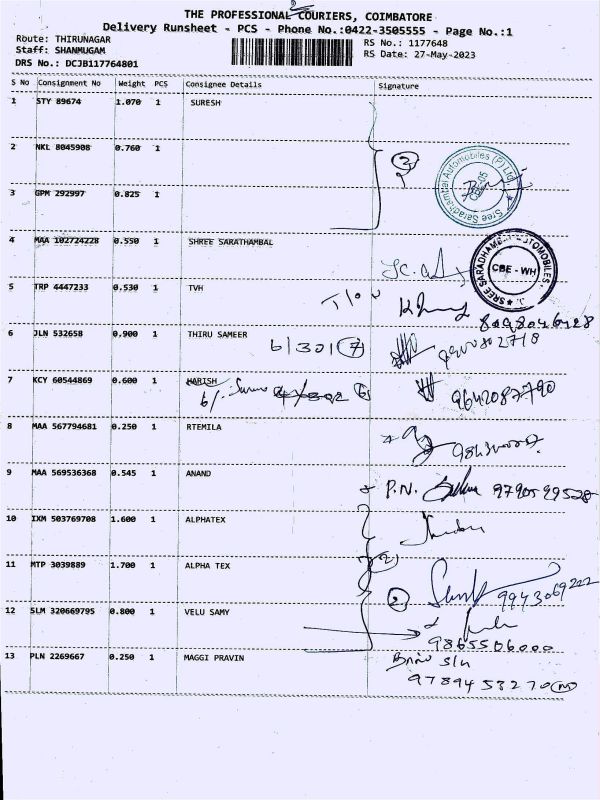 THE PROFESSIONAL COURIERS, COIMBATORE
Delivery Runsheet - PCS - Phone No.:0422-3505555 - Page No.:1
Route: THIRUNAGAR
RS No.: 1177648
Staff: SHANMUGAM
RS Date: 27-May-2023
DRS No.: DCJB117764801
S No Consignment No Weight PCS Consignee Details Signature
1 STY 89674 1.070 1 SURESH
2 NKL 8045908 0.760 1
3 GPM 292997 0.825 1
Sree Saradhambal Automobiles (P) Ltd
4 MAA 102724228 0.550 1 SHREE SARATHAMBAL
CBE - WH
5 TRP 4447233 0.530 1 TVH
6 JLN 532658 0.900 1 THIRU SAMEER
6/301 7
7 KCY 60544869 0.600 1 HARISH
9642087790
8 MAA 567794681 0.250 1 RTEMILA
9 MAA 569536368 0.545 1 ANAND
P.N. 9790599528
10 IXM 503769708 1.600 1 ALPHATEX
11 MTP 3039889 1.700 1 ALPHA TEX
2
2
9943069222
12 SLM 320669795 0.800 1 VELU SAMY
9865506000
13 PLN 2269667 0.250 1 MAGGI PRAVIN
9789453270